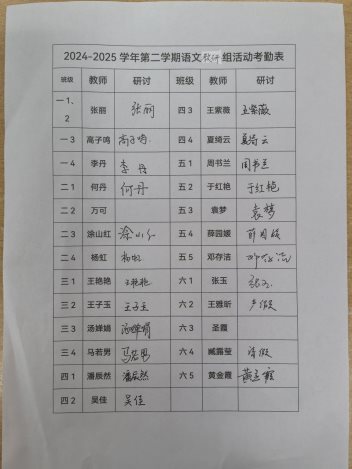 2024-2025 学年第二学期语文教研组活动考勤表
班级 教师 研讨 班级 教师 研讨
一1、2 张丽 张丽 四3 王紫薇 王紫薇
一3 高子鸣 高子鸣 四4 夏绮云 夏绮云
一4 李丹 李丹 五1 周书兰 周书兰
二1 何丹 何丹 五2 于红艳 于红艳
二2 万可 五3 袁梦 袁梦
二3 涂山红 涂山红 四4 薛园媛 薛园媛
二4 杨虹 杨虹 五5 邓存洁 邓存洁
三1 王艳艳 王艳艳 六1 张玉 张玉
三2 王子玉 王子玉 六2 王雅昕 产假
三3 汤婵娟 汤婵娟 六3 圣霞
三4 马若男 马若男 六4 臧露莹 请假
四1 潘辰然 潘辰然 六5 黄金霞 黄金霞
四2 吴佳 吴佳